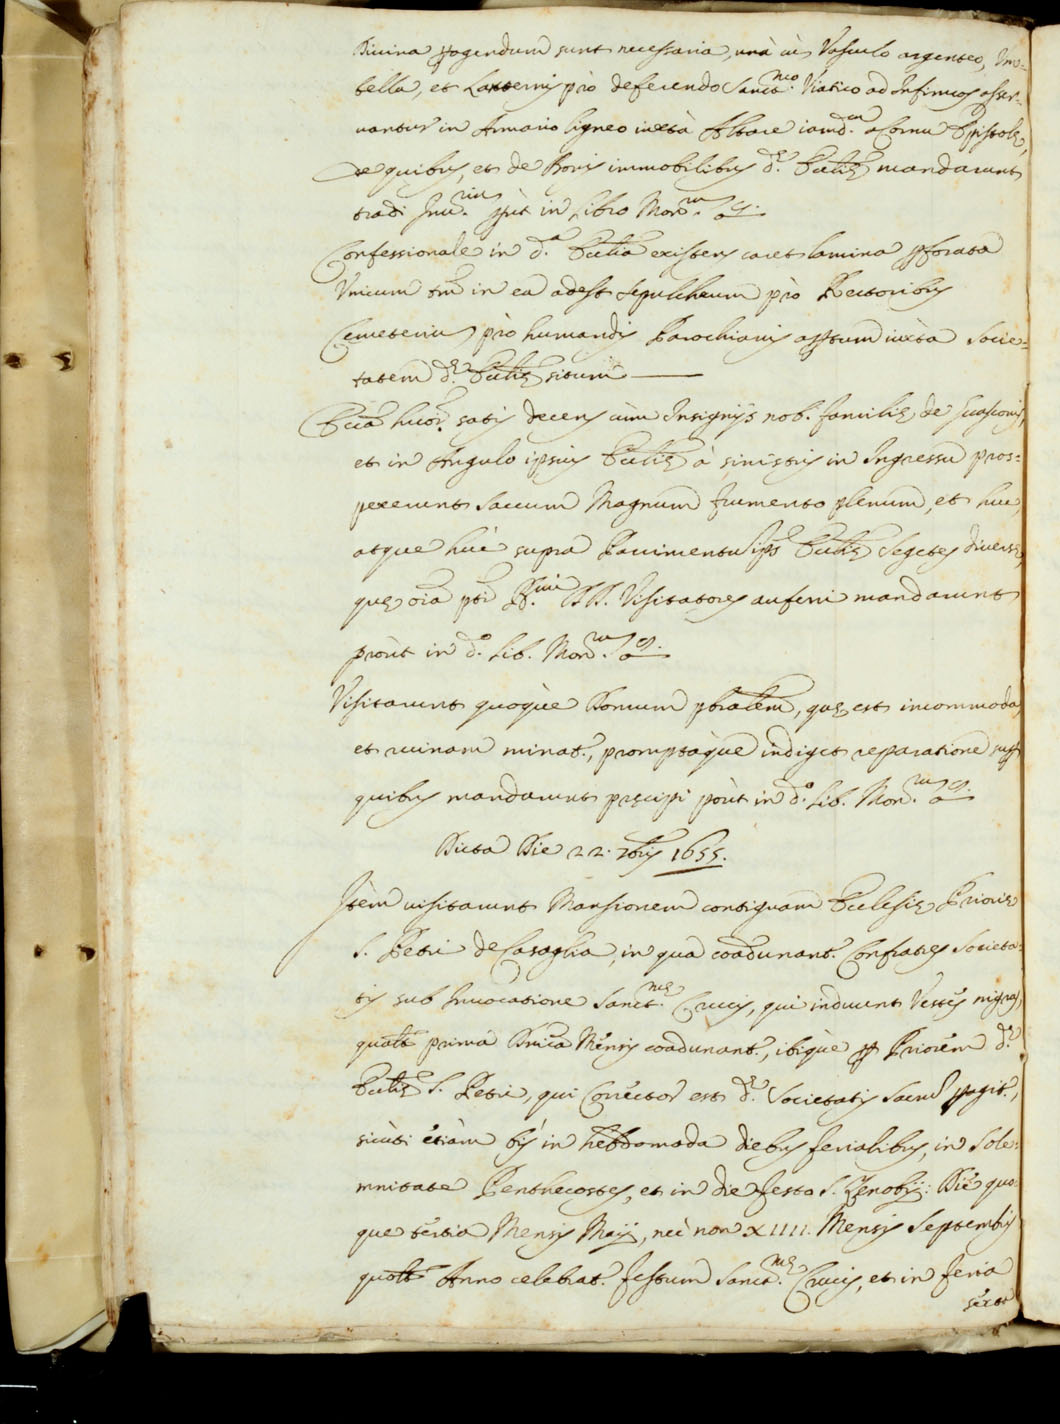 Divina peragendum sunt necessaria, unà cũ Vasculo argenteo, Vmo-
bella, et Lanternis prò deferendo Sanct.mo Viatico ad Infirmos asser-
vantur in Armario ligneo iuxtà Altare iamd.m a Cornu Epistolę,
De quibus, et de Bonis immobilibus d.ę Ecclię mandarunt
tradi Inu.rium prùt in Libro Mon.m
Confessionale in d.a Ecclia existens caret lamina pforata
Vnicum tm̃ in ea adest sepulchrum prò Rectoribus
Cemeterium prò humandis Parochianis apertum iuxta Socie-
tatem d.ę Ecclię situm
Eccã hmõi satis decens cùm Insignijs nob. familię de Guasconis,
et in Angulo ipsius Ecclię à sinistris in Ingressu pros-
pexerunt Saccum Magnum frumento plenum, et huc,
atque hùc supra Pavimentũ ips.ę Ecclię Segetes diversę,
quę oĩa pti R.mi DD. Visitatores auferri mandarunt
proùt in d.o Lib. Mon.m
Visitarunt quoquè Domum pbralem, quę est incommoda,
et ruinam minat., promptàque indiget reparatione sup
quibus mandarunt pręcipi poùt in d.o Lib. Mon.m
Dicta Die 22. 7bris 1655.
Itèm visitarunt Mansionem contiguam Ecclesię Prioris
S. Petri de Casaglia, in qua coadunant. Confratres Societa-
tis sub Invocatione Sanct.mę Crucis, qui induunt Vestes nigras,
qualt prima Dnĩca Mensis coadunant., ibique p Priorem d.ę
Ecclię S. Petri, qui Corrector est d.ę Societatis Sacrũ pagit.,
sicùti etiàm bis in hebdomada diebus ferialibus, in Sole-
mnitate Penthecostes, et in die festo S. Zenobij: Die quo-
que tertia Mensis Maij, nec non XIIII. Mensis Septembris
quolt Anno celebrat. festum Sanct.mę Crucis, et in feria
sexta